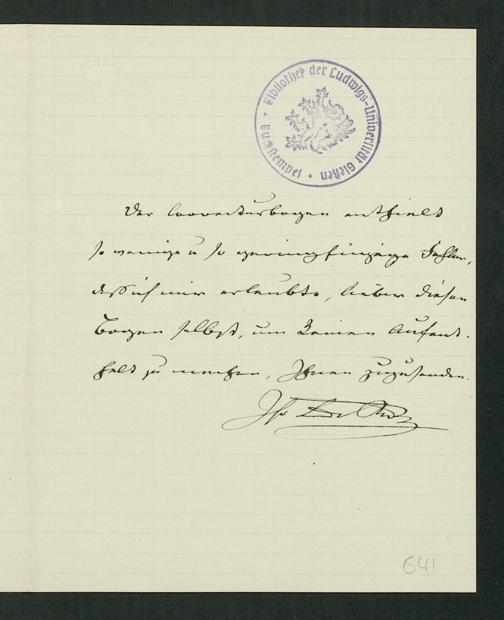 Bibliothek der Ludwigs-Universität Gießen
Der Correcturbogen enthielt
so wenige u so geringfügige Fehler,
daß ich mir erlaubte, lieber diesen
Bogen selbst, um keinen Aufent-
halt zu machen, Ihnen zuzusenden.
Ihr
641